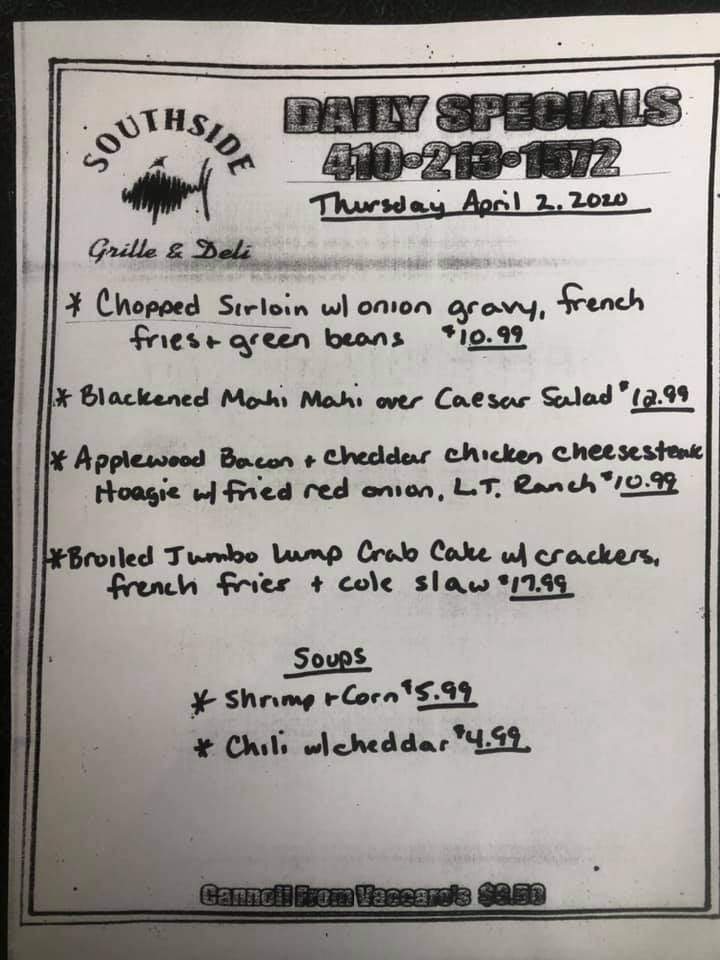 SOUTHSIDE
Grille & Deli
DAILY SPECIALS
410•213•1572
Thursday April 2. 2020
* Chopped Sirloin w/ onion gravy, french
fries + green beans $10.99
* Blackened Mahi Mahi over Caesar Salad $12.99
* Applewood Bacon + Cheddar chicken cheesesteak
Hoagie w/ fried red onion, L.T. Ranch $10.99
* Broiled Jumbo Lump Crab Cake w/ crackers,
french fries + cole slaw $17.99
Soups
* Shrimp + Corn $5.99
* Chili w/cheddar $4.99
Cannoli From Vaccaro's